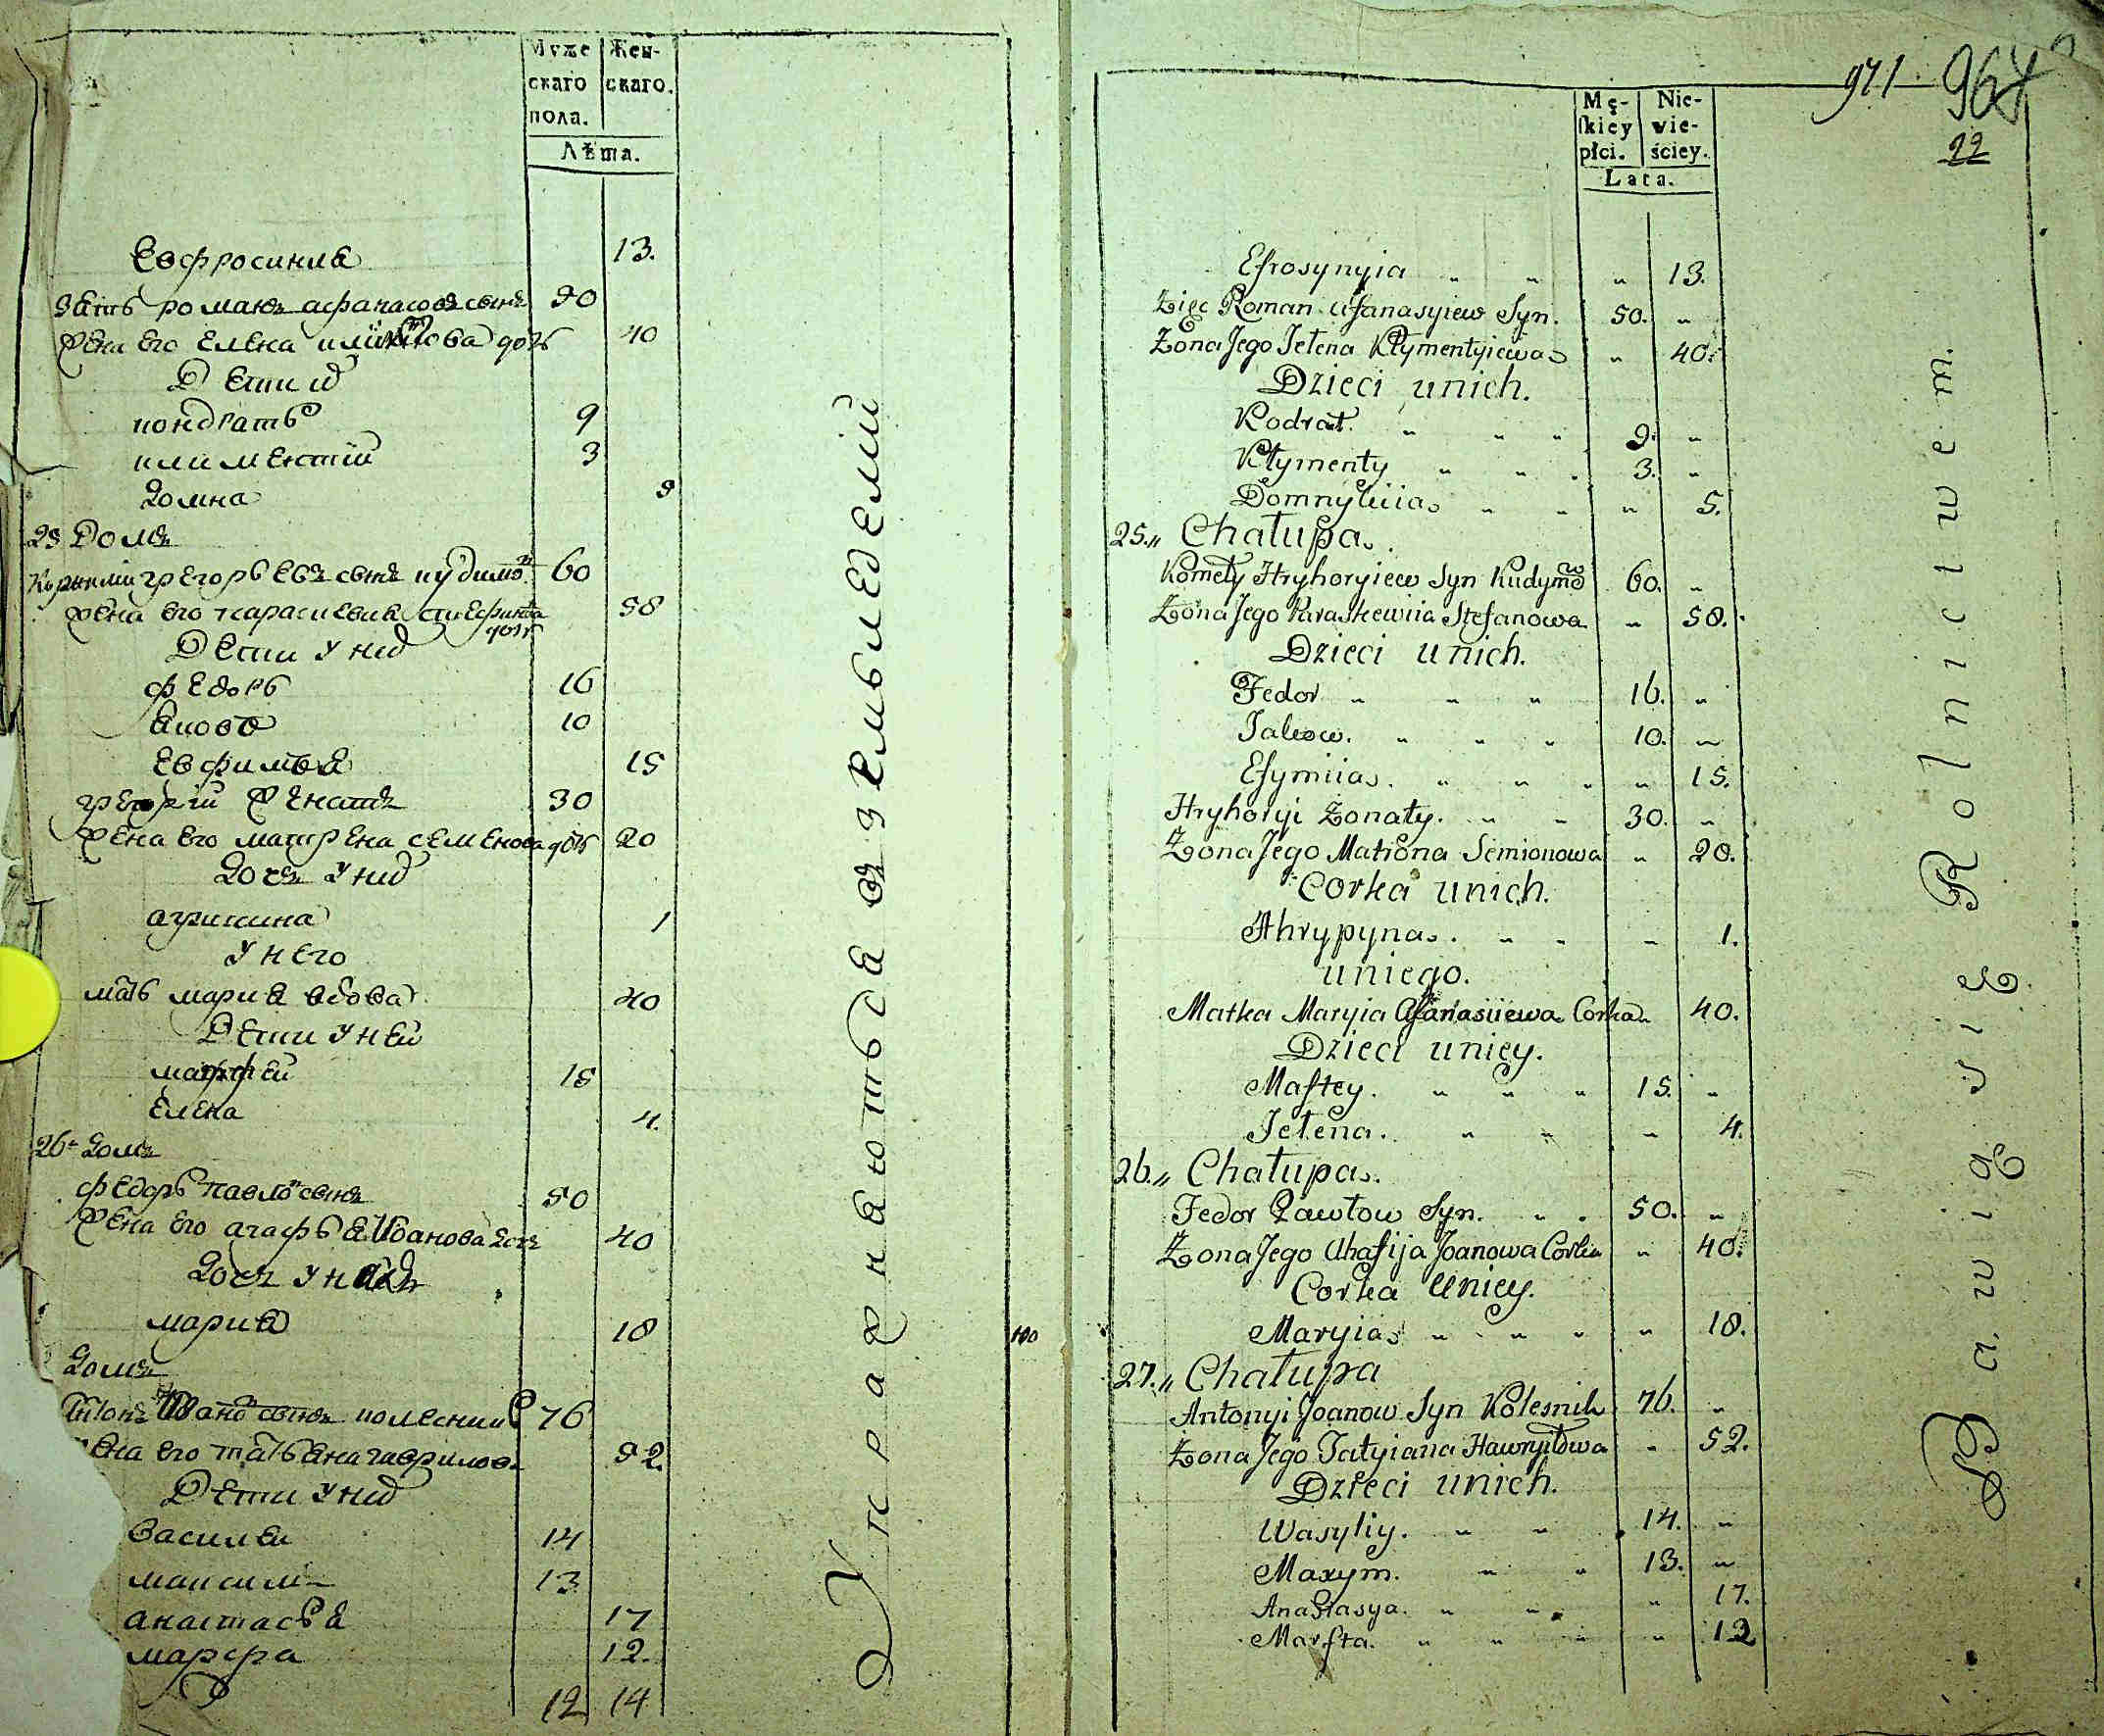 Муже
скаго
пола.
Жен-
скаго.
Лѣта.
Евфросиниа 13.
Зять романъ афанасовъ сынъ 50
жена его елена климтова дочь 40
Дети
кондрать 9
климентій 3
домна 5
25 Домъ
Корнилій грегорьевъ сынъ кудимо 60
жена его параскевиа стефанова дочь 58
Дети у них
федоръ 16
Яковъ 10
Евфимья 15
грегорій женатъ 30
жена его матрена семенова дочь 20
дочь у них
агрипина 1
у него
мать мариа вдова 40
Дети у ней
матфей 15
Елена 4.
26 домъ
федоръ павло сынъ 50
жена его агафья Иванова дочь 40
дочь у них
мариа 18
Домъ
Антонъ Ивано сынъ колесник 76
жена его татьяна гаврилов. 52.
Дети у них
василей 14
максим 13
анастасья 17
марфа 12.
12 14
Упражняються въ земледелии
100
971 964
22
Mę-
ſkiey
płci.
Nie-
wie-
ściey.
Lata.
Efrosynyia " " " 13.
Zięc Roman Afanasyiew Syn. 50. "
Żona Jego Jełena Kłymentyiewa " 40.
Dzieci unich.
Kodrat. " " " 9. "
Kłymenty " " " 3. "
Domnykiia " " " 5.
25. " Chałupa.
Kornely Hryhoryiew Syn Kudymow 60. "
Żona Jego Paraskewiia Stefanowa " 58.
Dzieci unich.
Fedor " " " 16. "
Jakow. " " " 10. "
Efymiia. " " " " 15.
Hryhoryi Żonaty. " " 30. "
Żona Jego Matrona Semionowa " 20.
Corka unich.
Ahrypyna. " " " 1.
uniego.
Matka Maryia Afanasiiewa Corka " 40.
Dzieci uniey.
Maftey. " " " 15. "
Jełena. " " " 4.
26. " Chałupa.
Fedor Pawłow Syn. " " 50. "
Żona Jego Ahafija Joanowa Corka " 40.
Corka Uniey.
Maryia " " " " 18.
27. " Chałupa
Antonyi Joanow Syn Kolesnik 76. "
Żona Jego Tatyiana Hawryłowa " 52.
Dzieci unich.
Wasyliy. " " 14. "
Maxym. " " 13. "
Anastasya. " " " 17.
Marfta. " " " " 12
Bawią się Rolnictwem.